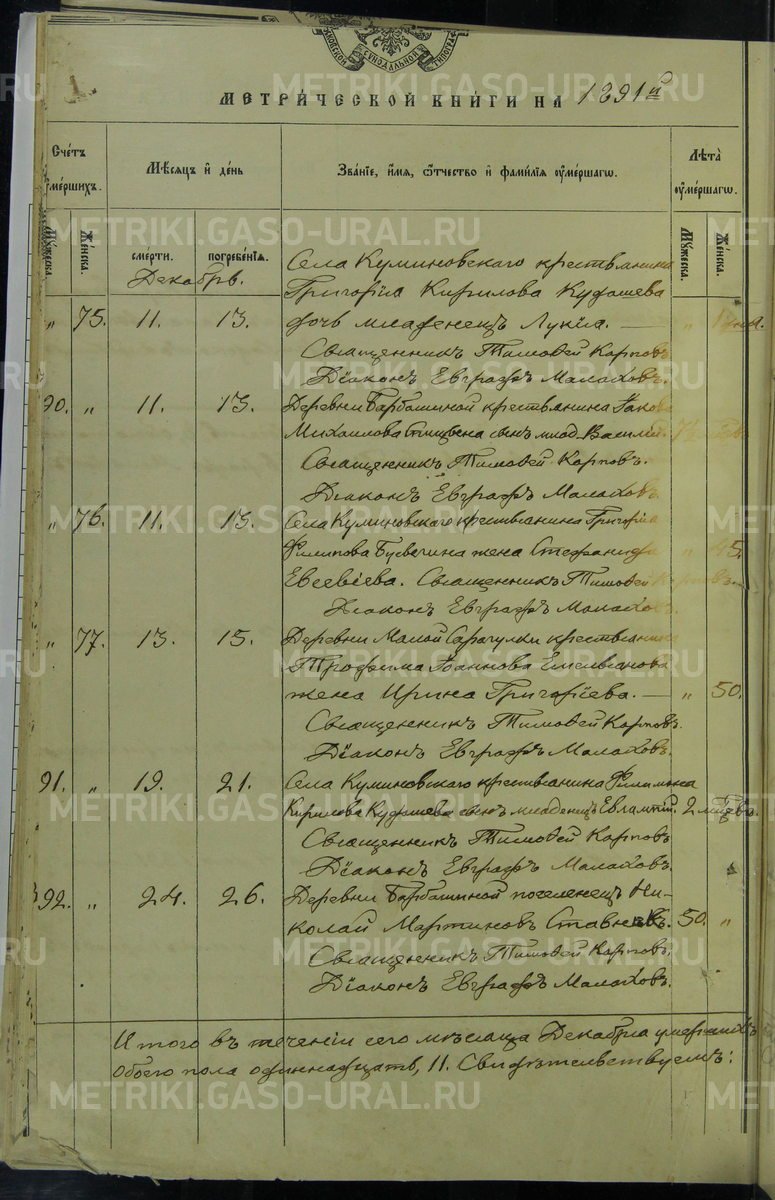 МОСКОВСКОЙ СУНОДАЛЬНОЙ ТИПОГРАФ
МЕТРИ́ЧЕСКОЙ КНИ́ГИ НА 1891й
Сче́тъ оуме́ршихъ.
Мѣ́сяцъ и де́нь
Зва́нїе, и́мя, ѻ҆́тчество и фами́лїя оуме́ршагѡ.
Лѣта̀ оуме́ршагѡ.
Му́жеска.
Же́нска.
сме́рти.
погребе́нїя.
Му́жеска.
Же́нска.
Декабрь.
Села Куминовскаго крестьянина
Григорія Кирилова Кудашева
" 75. 11. 13. дочь младенецъ Лукія. — "
Священникъ Тимоѳей Карповъ
Діаконъ Евграфъ Малаховъ.
90. " 11. 13. Деревни Барбашиной крестьянина Іакова
Михаилова сынъ млад. Василій.
Священникъ Тимоѳей Карповъ.
Діаконъ Евграфъ Малаховъ.
" 76. 11. 13. Села Куминовскаго крестьянина Григорія
Филипова жена Стефанида " 45.
Евсевіева. Священникъ Тимоѳей Карповъ.
Діаконъ Евграфъ Малаховъ.
" 77. 13. 15. Деревни Малой Сарагулки крестьянина
Трофима Іоаннова Емельянова
жена Ирина Григоріева. — " 50.
Священникъ Тимоѳей Карповъ.
Діаконъ Евграфъ Малаховъ.
91. " 19. 21. Села Куминовскаго крестьянина Филимона
Кирилова Кудашева сынъ младенецъ Евлампій. 2 мѣсев.
Священникъ Тимоѳей Карповъ
Діаконъ Евграфъ Малаховъ.
92. " 24. 26. Деревни Барбашиной поселенецъ Ни-
колай Мартиновъ 50. "
Священникъ Тимоѳей Карповъ,
Діаконъ Евграфъ Малаховъ.
Итого въ теченіи сего мѣсяца Декабря умершихъ
обоего пола одиннадцать, 11. Свидѣтельствуемъ:
METRIKI.GASO-URAL.RU